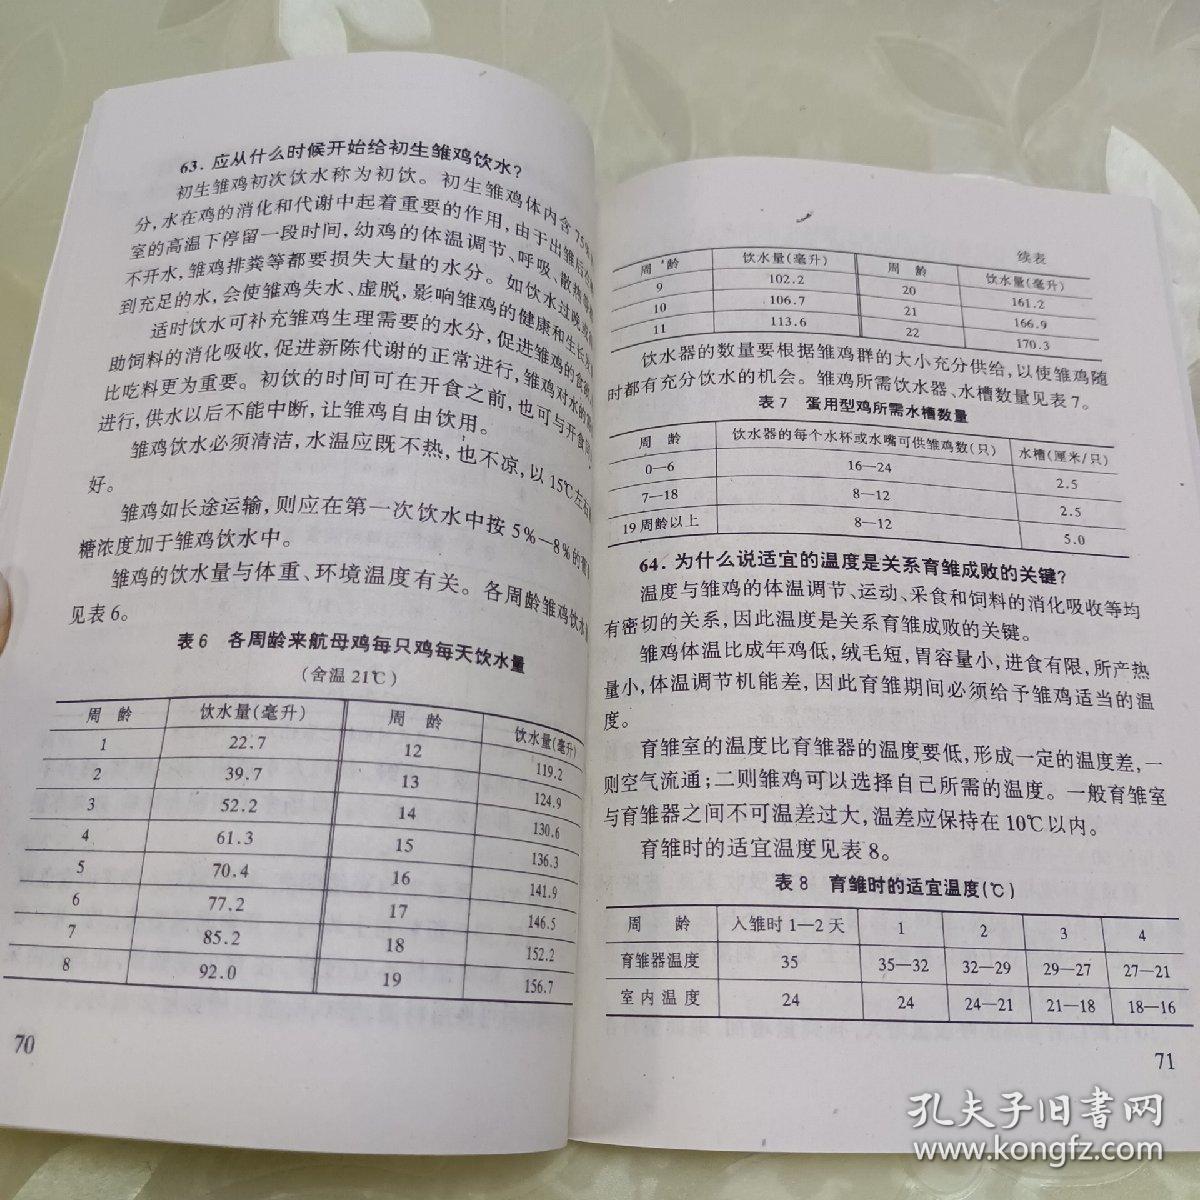 63. 应从什么时候开始给初生雏鸡饮水?
初生雏鸡初次饮水称为初饮。初生雏鸡体内含75%
分,水在鸡的消化和代谢中起着重要的作用,由于出雏后在
室的高温下停留一段时间,幼鸡的体温调节、呼吸、散热
不开水,雏鸡排粪等都要损失大量的水分。如饮水过晚
到充足的水,会使雏鸡失水、虚脱,影响雏鸡的健康和生长
适时饮水可补充雏鸡生理需要的水分,促进雏鸡的食欲
助饲料的消化吸收,促进新陈代谢的正常进行,雏鸡对水的
比吃料更为重要。初饮的时间可在开食之前,也可与开食
进行,供水以后不能中断,让雏鸡自由饮用。
雏鸡饮水必须清洁,水温应既不热,也不凉,以15℃左右
好。
雏鸡如长途运输,则应在第一次饮水中按5%—8%的
糖浓度加于雏鸡饮水中。
雏鸡的饮水量与体重、环境温度有关。各周龄雏鸡饮水
见表6。
表6 各周龄来航母鸡每只鸡每天饮水量
(舍温21℃)
周 龄 饮水量(毫升) 周 龄 饮水量(毫升)
1 22.7 12 119.2
2 39.7 13 124.9
3 52.2 14 130.6
4 61.3 15 136.3
5 70.4 16 141.9
6 77.2 17 146.5
7 85.2 18 152.2
8 92.0 19 156.7
70
续表
周 龄 饮水量(毫升) 周 龄 饮水量(毫升)
9 102.2 20 161.2
10 106.7 21 166.9
11 113.6 22 170.3
饮水器的数量要根据雏鸡群的大小充分供给,以使雏鸡随
时都有充分饮水的机会。雏鸡所需饮水器、水槽数量见表7。
表7 蛋用型鸡所需水槽数量
周 龄 饮水器的每个水杯或水嘴可供雏鸡数(只) 水槽(厘米/只)
0—6 16—24 2.5
7—18 8—12 2.5
19周龄以上 8—12 5.0
64. 为什么说适宜的温度是关系育雏成败的关键?
温度与雏鸡的体温调节、运动、采食和饲料的消化吸收等均
有密切的关系,因此温度是关系育雏成败的关键。
雏鸡体温比成年鸡低,绒毛短,胃容量小,进食有限,所产热
量小,体温调节机能差,因此育雏期间必须给予雏鸡适当的温
度。
育雏室的温度比育雏器的温度要低,形成一定的温度差,一
则空气流通;二则雏鸡可以选择自己所需的温度。一般育雏室
与育雏器之间不可温差过大,温差应保持在10℃以内。
育雏时的适宜温度见表8。
表8 育雏时的适宜温度(℃)
周 龄 入雏时1—2天 1 2 3 4
育雏器温度 35 35—32 32—29 29—27 27—21
室内温度 24 24 24—21 21—18 18—16
71
孔夫子旧书网
www.kongfz.com